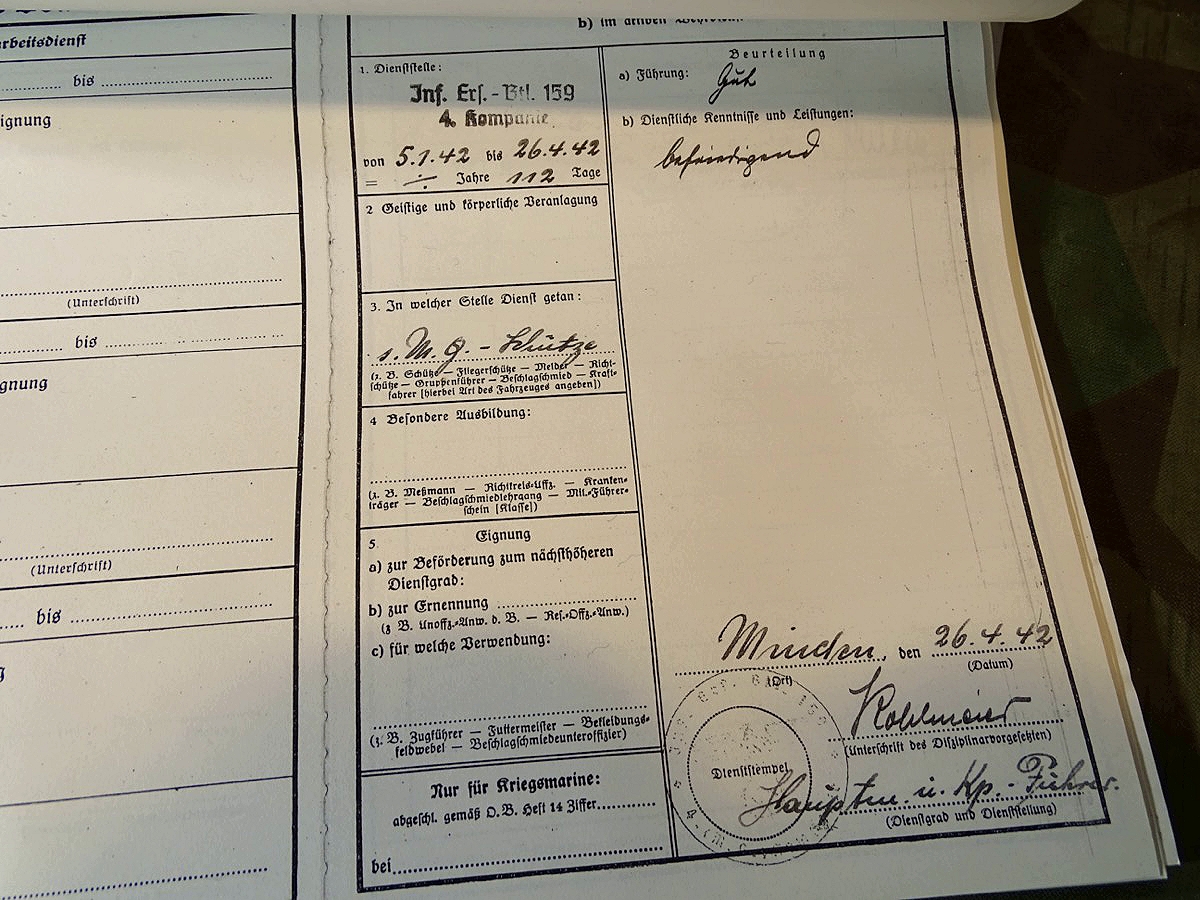 arbeitsdienst
bis
ignung
(Unterschrift)
bis
gnung
(Unterschrift)
bis
b) im aktiven Wehrdienst
1. Dienststelle:
Inf. Ers.-Btl. 159
4. Kompanie
von 5.1.42 bis 26.4.42
= ./. Jahre 112 Tage
2 Geistige und körperliche Veranlagung
3. In welcher Stelle Dienst getan:
s. M. G. - Schütze
(z. B. Schütze — Fliegerschütze — Melder — Richt-
schütze — Gruppenführer — Beschlagschmied — Kraft-
fahrer [hierbei Art des Fahrzeuges angeben])
4 Besondere Ausbildung:
(z. B. Meßmann — Richtkreis-Uffz. — Kranken-
träger — Beschlagschmiedlehrgang — Mil.-Führer-
schein [Klasse])
5. Eignung
a) zur Beförderung zum nächsthöheren
Dienstgrad:
b) zur Ernennung
(z B. Unoffz.-Anw. d. B. — Res.-Offz.-Anw.)
c) für welche Verwendung:
(z. B. Zugführer — Futtermeister — Bekleidungs-
feldwebel — Beschlagschmiedeunteroffizier)
Nur für Kriegsmarine:
abgeschl. gemäß O.B. Heft 14 Ziffer
bei
Beurteilung
a) Führung: Gut
b) Dienstliche Kenntnisse und Leistungen:
befriedigend
Minden, den 26.4.42
(Ort) (Datum)
Kohlmeier
(Unterschrift des Disziplinarvorgesetzten)
Dienststempel
Hauptm. u. Kp.-Führer.
(Dienstgrad und Dienststellung)